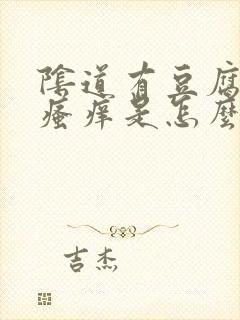 陰道有豆腐
瘙痒是怎麼
吉杰